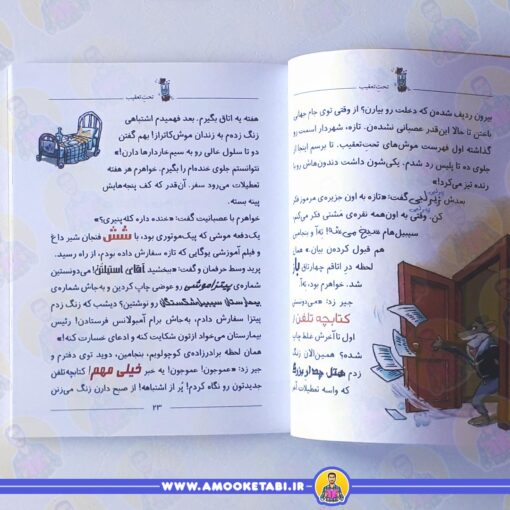 تحت‌تعقیب
بیرون ردیف شده‌ن که دخلت رو بیارن؟ از وقتی توی جام جهانی
باختن تا حالا این‌قدر عصبانی نشده‌ن. تازه، شهردار اسمت رو
گذاشته اول فهرست موش‌های تحت‌تعقیب. تا برسم اینجا از
جلوی ده تا پلیس رد شدم. یکی‌شون داشت دندون‌هاش رو با
رنده تیز می‌کرد!»
بعدش زیر لبی گفت: «تازه به اون جزیره‌ی هرموز فکر
کن. وقتی به اون‌همه نقره‌ی مَشتی فکر می‌کنم،
سیبیل‌هام سیخ می‌شه! ته‌آ و بنجامین
هم قبول کرده‌ن بیان.» همان
لحظه در اتاقم چهارتاق باز
شد. خواهرم بود، ته‌آ.
جیر زد: «می‌دونستی
کتابچه تلفن
اول تا آخرش غلط چاپ
شده؟ همین‌الان زنگ
زدم هتل چدار بزرگ
که واسه تعطیلات آخر
تحت‌تعقیب
هفته یه اتاق بگیرم. بعد فهمیدم اشتباهی
زنگ زده‌م به زندان موش‌کاتراز! بهم گفتن
دو تا سلول خالی رو به سیم‌خاردارها دارن!»
نتوانستم جلوی خنده‌ام را بگیرم. خواهرم هر هفته
تعطیلات می‌رود سفر. آن‌قدر که کف پنجه‌هایش
پینه بسته.
خواهرم با عصبانیت گفت: «خنده داره کله‌پنیری؟»
یک‌دفعه موشی که پیک‌موتوری بود، با شش فنجان شیر داغ
و فیلم آموزشی یوگایی که تازه سفارش داده بودم، از راه رسید.
پرید وسط حرفمان و گفت: «ببخشید آقای استیلتن! می‌دونستین
شماره‌ی پیتزاموشی رو عوضی چاپ کردین و به‌جاش شماره‌ی
بیمارستان سیبیل‌شکستگان رو نوشتین؟ دیشب که زنگ زدم
پیتزا سفارش دادم، به‌جاش برام آمبولانس فرستادن! رئیس
بیمارستان می‌خواد ازتون شکایت کنه و ادعای خسارت کنه!»
همان لحظه برادرزاده‌ی کوچولویم، بنجامین، دوید توی دفترم و
جیر زد: «عموجون! عموجون! یه خبر خیلی مهم! کتابچه‌تلفن
جدیدتون رو نگاه کردم! پُر از اشتباهه! از صبح دارن زنگ می‌زنن
۲۳
WWW.AMOOKETABI.IR